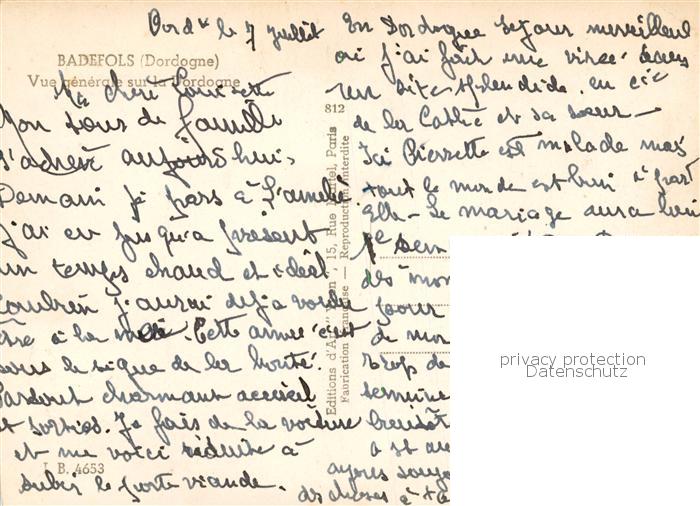 Bordx le 7 juillet
BADEFOLS (Dordogne)
Vue générale sur la Dordogne
Ma chère Louisette
Mon tour de famille
s'achève aujourd'hui.
Demain je pars à
j'ai eu jusqu'à présent
un temps chaud et idéal
Combien j'aurai déjà voulu
être à la mer. Cette année c'est
sous le signe de la bonté.
Partout charmant accueil
et sorties. Je fais de la voiture
et me voici réduite à
L. B. 4653
subir le porte viande.
812
Editions d'Art "Yvon", 15, Rue Martel, Paris
Fabrication Française — Reproduction Interdite
En Dordogne séjour merveilleux
où j'ai fait une virée dans
un site splendide. en cie
de la Cathie et sa sœur —
Ici Pierrette est malade mais
tout le monde est bien à part
Elle — Le mariage aura lieu
des
pour
de
trop de
semaine
bientôt
a st
après
des choses à
privacy protection
Datenschutz